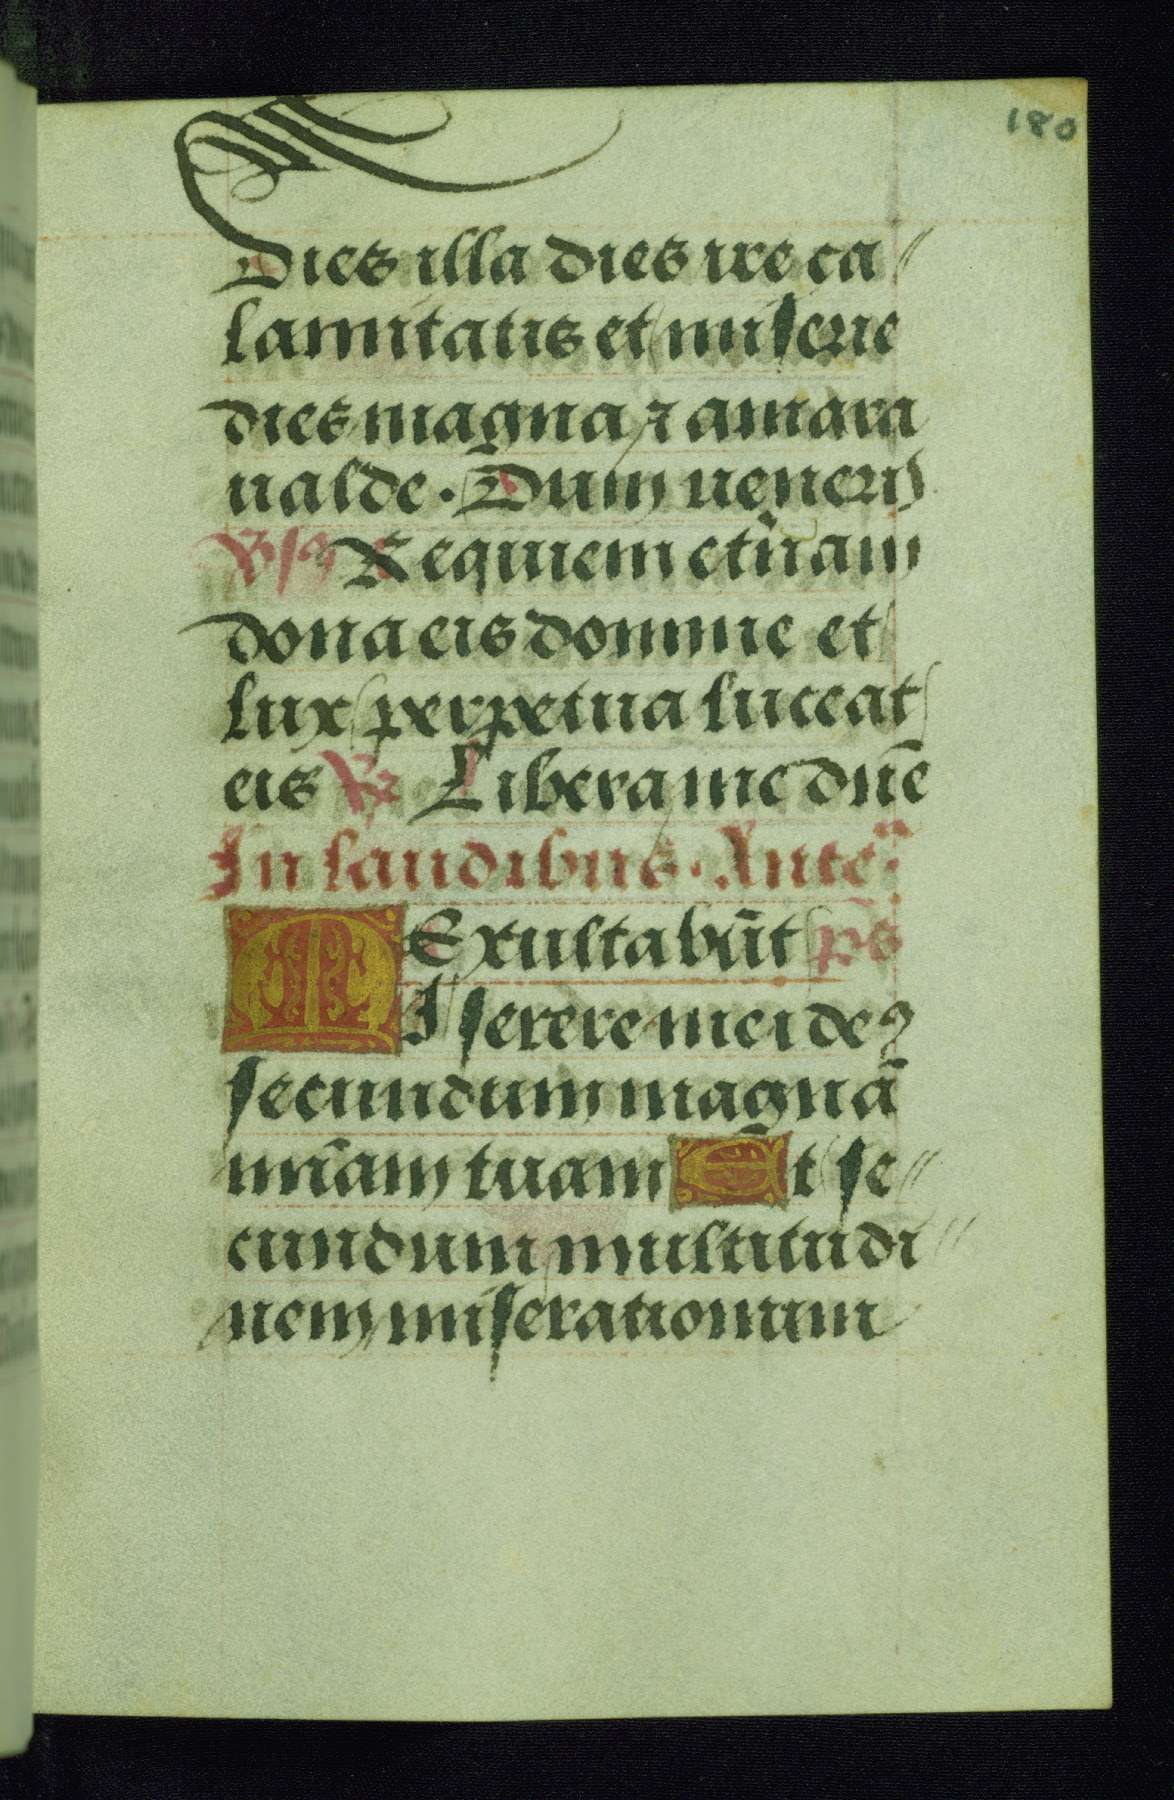 180
Dies illa dies ire ca〃
lamitatis et miserie
dies magna ⁊ amara
ualde. Dum ueneris
Vsꝯ Requiem etn̄am
dona eis domine et
lux perpetua luceat
eis ℟ Libera me dn̄e
In laudibus. Ante.
Exultabūt ps̄
MIserere mei deꝰ
secundum magnā
mīam tuam Et se〃
cundum multitudi〃
nem miserationum